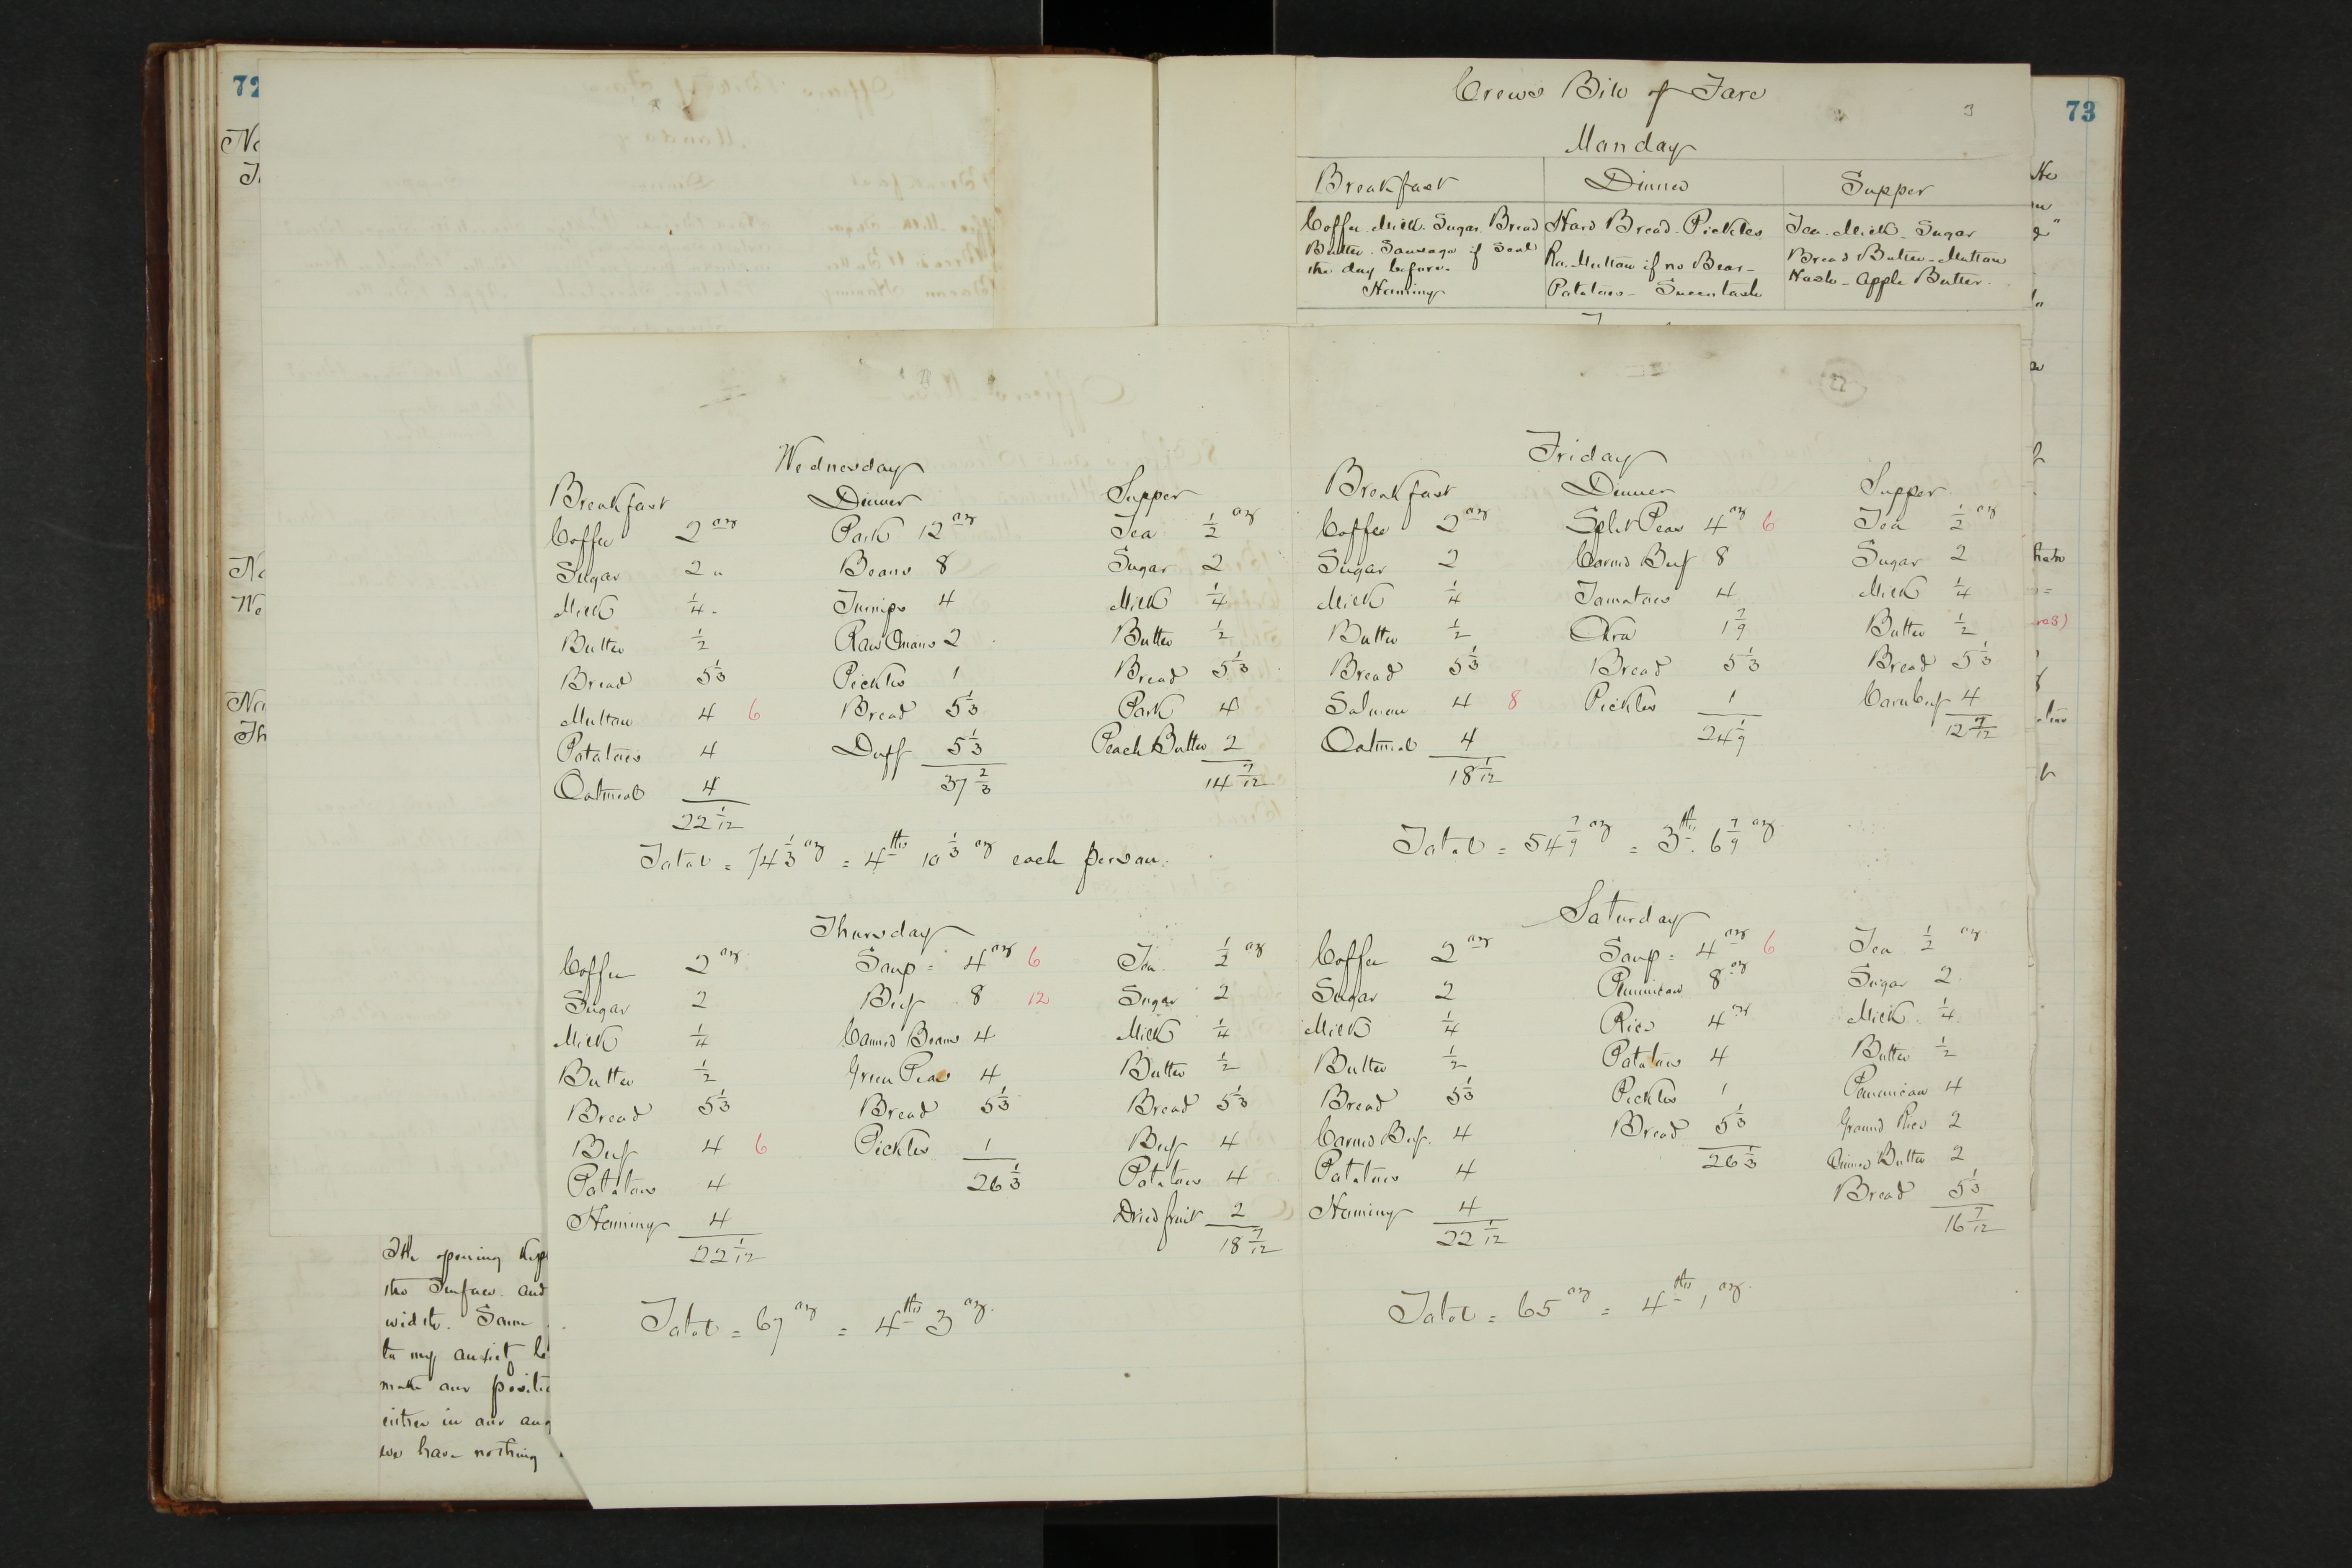 72
73
Crews Bill of Fare
3
Monday
Breakfast Dinner Supper
Coffee. Milk. Sugar. Bread
Butter. Sausage if Seal
the day before.
Hominy
Hard Bread. Pickles
Ro. Mutton if no Bear -
Potatoes - Succotash
Tea. Milk. Sugar
Bread Butter - Mutton
Hash - Apple Butter.
Wednesday
Breakfast Dinner Supper
Coffee 2 oz Pork 12 oz Tea 1/2 oz
Sugar 2 " Beans 8 Sugar 2
Milk 1/4 " Turnips 4 Milk 1/4
Butter 1/2 Raw Onions 2 Butter 1/2
Bread 5 1/3 Pickles 1 Bread 5 1/3
Mutton 4 6 Bread 5 1/3 Pork 4
Potatoes 4 Duff 5 1/3 Peach Butter 2
Oatmeal 4 37 2/3 14 7/12
22 1/12
Total = 74 1/3 oz = 4 lbs 10 1/3 oz each person.
Thursday
Coffee 2 oz Soup = 4 oz 6 Tea 1/2 oz
Sugar 2 Beef 8 12 Sugar 2
Milk 1/4 Canned Beans 4 Milk 1/4
Butter 1/2 Green Peas 4 Butter 1/2
Bread 5 1/3 Bread 5 1/3 Bread 5 1/3
Beef 4 6 Pickles 1 Beef 4
Potatoes 4 26 1/3 Potatoes 4
Hominy 4 Dried fruit 2
22 1/12 18 7/12
Total = 67 oz = 4 lbs 3 oz.
Friday
Breakfast Dinner Supper
Coffee 2 oz Split Peas 4 oz 6 Tea 1/2 oz
Sugar 2 Corned Beef 8 Sugar 2
Milk 1/4 Tomatoes 4 Milk 1/4
Butter 1/2 Okra 1 7/9 Butter 1/2
Bread 5 1/3 Bread 5 1/3 Bread 5 1/3
Salmon 4 8 Pickles 1 Corn beef 4
Oatmeal 4 24 1/9 12 7/12
18 1/12
Total = 54 7/9 oz = 3 lbs. 6 7/9 oz.
Saturday
Coffee 2 oz Soup = 4 oz 6 Tea 1/2 oz
Sugar 2 Pemmican 8 oz Sugar 2
Milk 1/4 Rice 4 oz Milk 1/4
Butter 1/2 Potatoes 4 Butter 1/2
Bread 5 1/3 Pickles 1 Pemmican 4
Corned Beef. 4 Bread 5 1/3 Ground Rice 2
Potatoes 4 26 1/3 Butter 2
Hominy 4 Bread 5 1/3
22 1/12 16 7/12
Total = 65 oz = 4 lbs 1 oz.
The opening
the Surface. and
width. Some
to my
make our
either in our
we have nothing